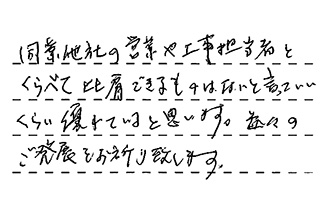 同業他社の営業や工事担当者と
くらべて比肩できるものはないと言っていい
くらい優れていると思います。益々の
ご発展をお祈り致します。